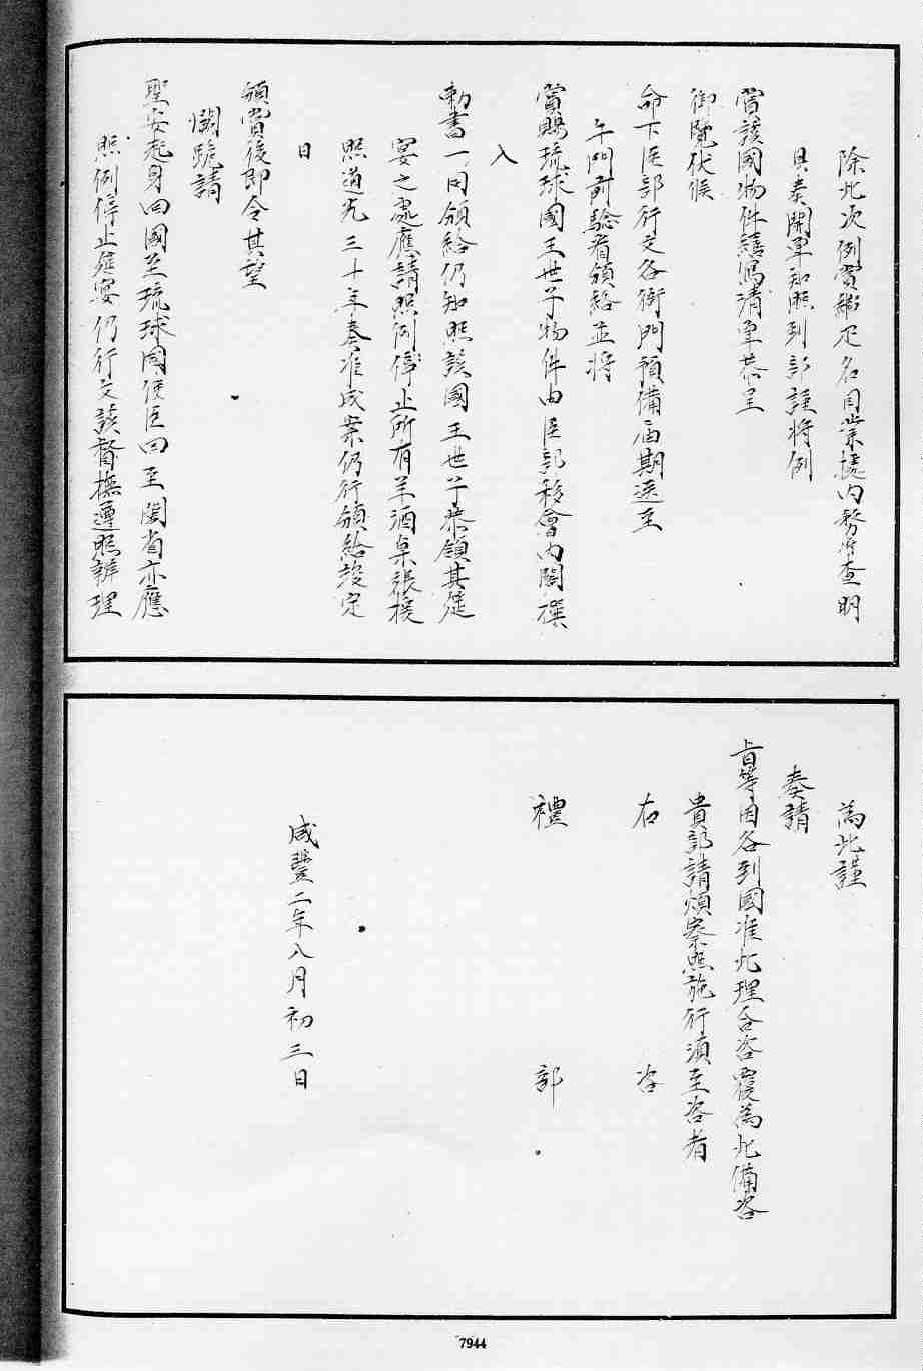 除此次例賞緞疋名目業據內務府查明
具奏開單知照到部謹將例
賞該國物件繕寫清單恭呈
御覽伏候
命下臣部行文各衙門預備屆期送至
午門前驗看頒給並將
賞賜琉球國王世子物件由臣部移會內閣撰
入
勅書一同頒給仍知照該國王世子恭領其筵
宴之處應請照例停止所有羊酒桌張援
照道光三十年奏准成案仍行頒給設定
日
頒賞後即令其望
闕跪請
聖安起身回國至琉球國使臣回至閩省亦應
照例停止筵宴仍行文該督撫遵照辦理
為此謹
奏請
旨等因各到國准此理合咨覆為此備咨
貴部請煩察照施行須至咨者
右咨
禮部
咸豐二年八月初三日
7944